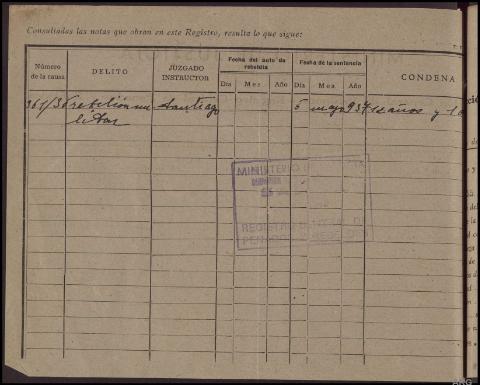 Consultadas las notas que obran en este Registro, resulta lo que sigue:
Número de la causa
DELITO
JUZGADO INSTRUCTOR
Fecha del auto de rebeldía
Día Mes Año
Fecha de la sentencia
Día Mes Año
CONDENA
rebelión mi Santiago 5 mayo 937 12 años y 1
litar
MINISTERIO
REGISTRO